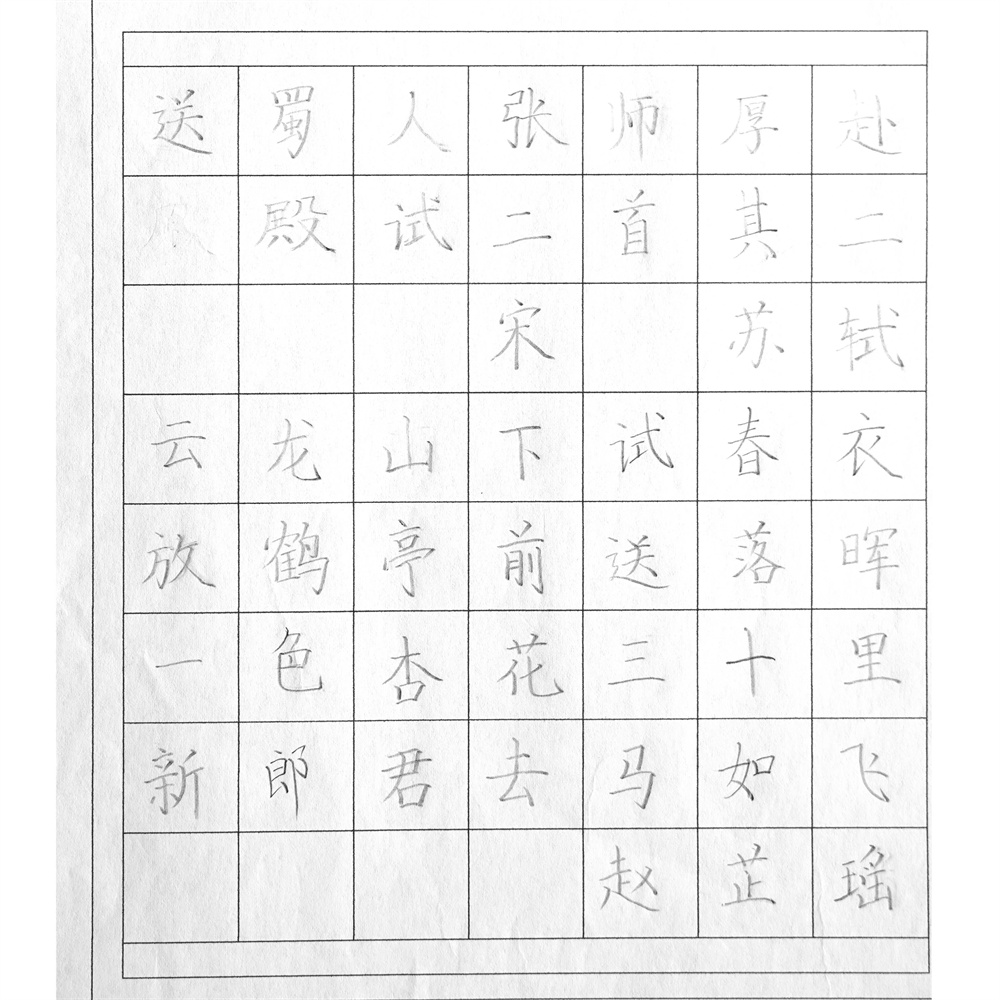 送蜀人张师厚赴
殿试二首其二
宋 苏轼
云龙山下试春衣
放鹤亭前送落晖
一色杏花三十里
新郎君去马如飞
赵芷瑶